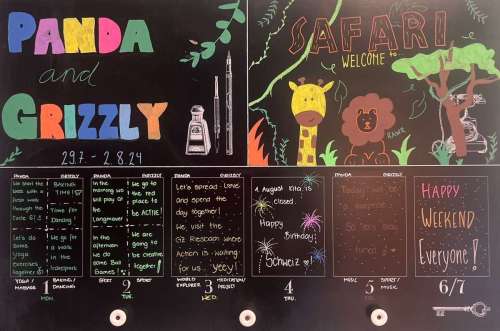 PANDA
and
GRIZZLY
29.7. - 2.8.24
SAFARI
WELCOME to
RAWR
PANDA GRIZZLY
We start the
week with a
through the
Let's do
some
Yoga
exercises
together
BAKING
TIME!
Time for
Dancing!
We go for
a walk
in the
PANDA GRIZZLY
In the
morning we
will play at
the
Langmauer
In the
afternoon we
do some
Ball Games
We go to
the red
place to
be ACTIVE!
We are
going to
be creative
together!
PANDA GRIZZLY
Let's spread love
and spend the
day together!
We visit the
GZ Riesbach where
Action is waiting
for us yeey!
1. August Kita is
closed.
Happy
Birthday
Schweiz
PANDA GRIZZLY
Today
be
HAPPY
WEEKEND
Everyone!
YOGA/
MASSAGE
1
MON.
BAKING/
DANCING
SPORT
2
TUE.
SPORT/
WORLD
EXPLORER
3
WED.
MEDITATION/
PROJECT
4
THU.
MUSIC
5
FRI.
SPORT/
MUSIC
6/7